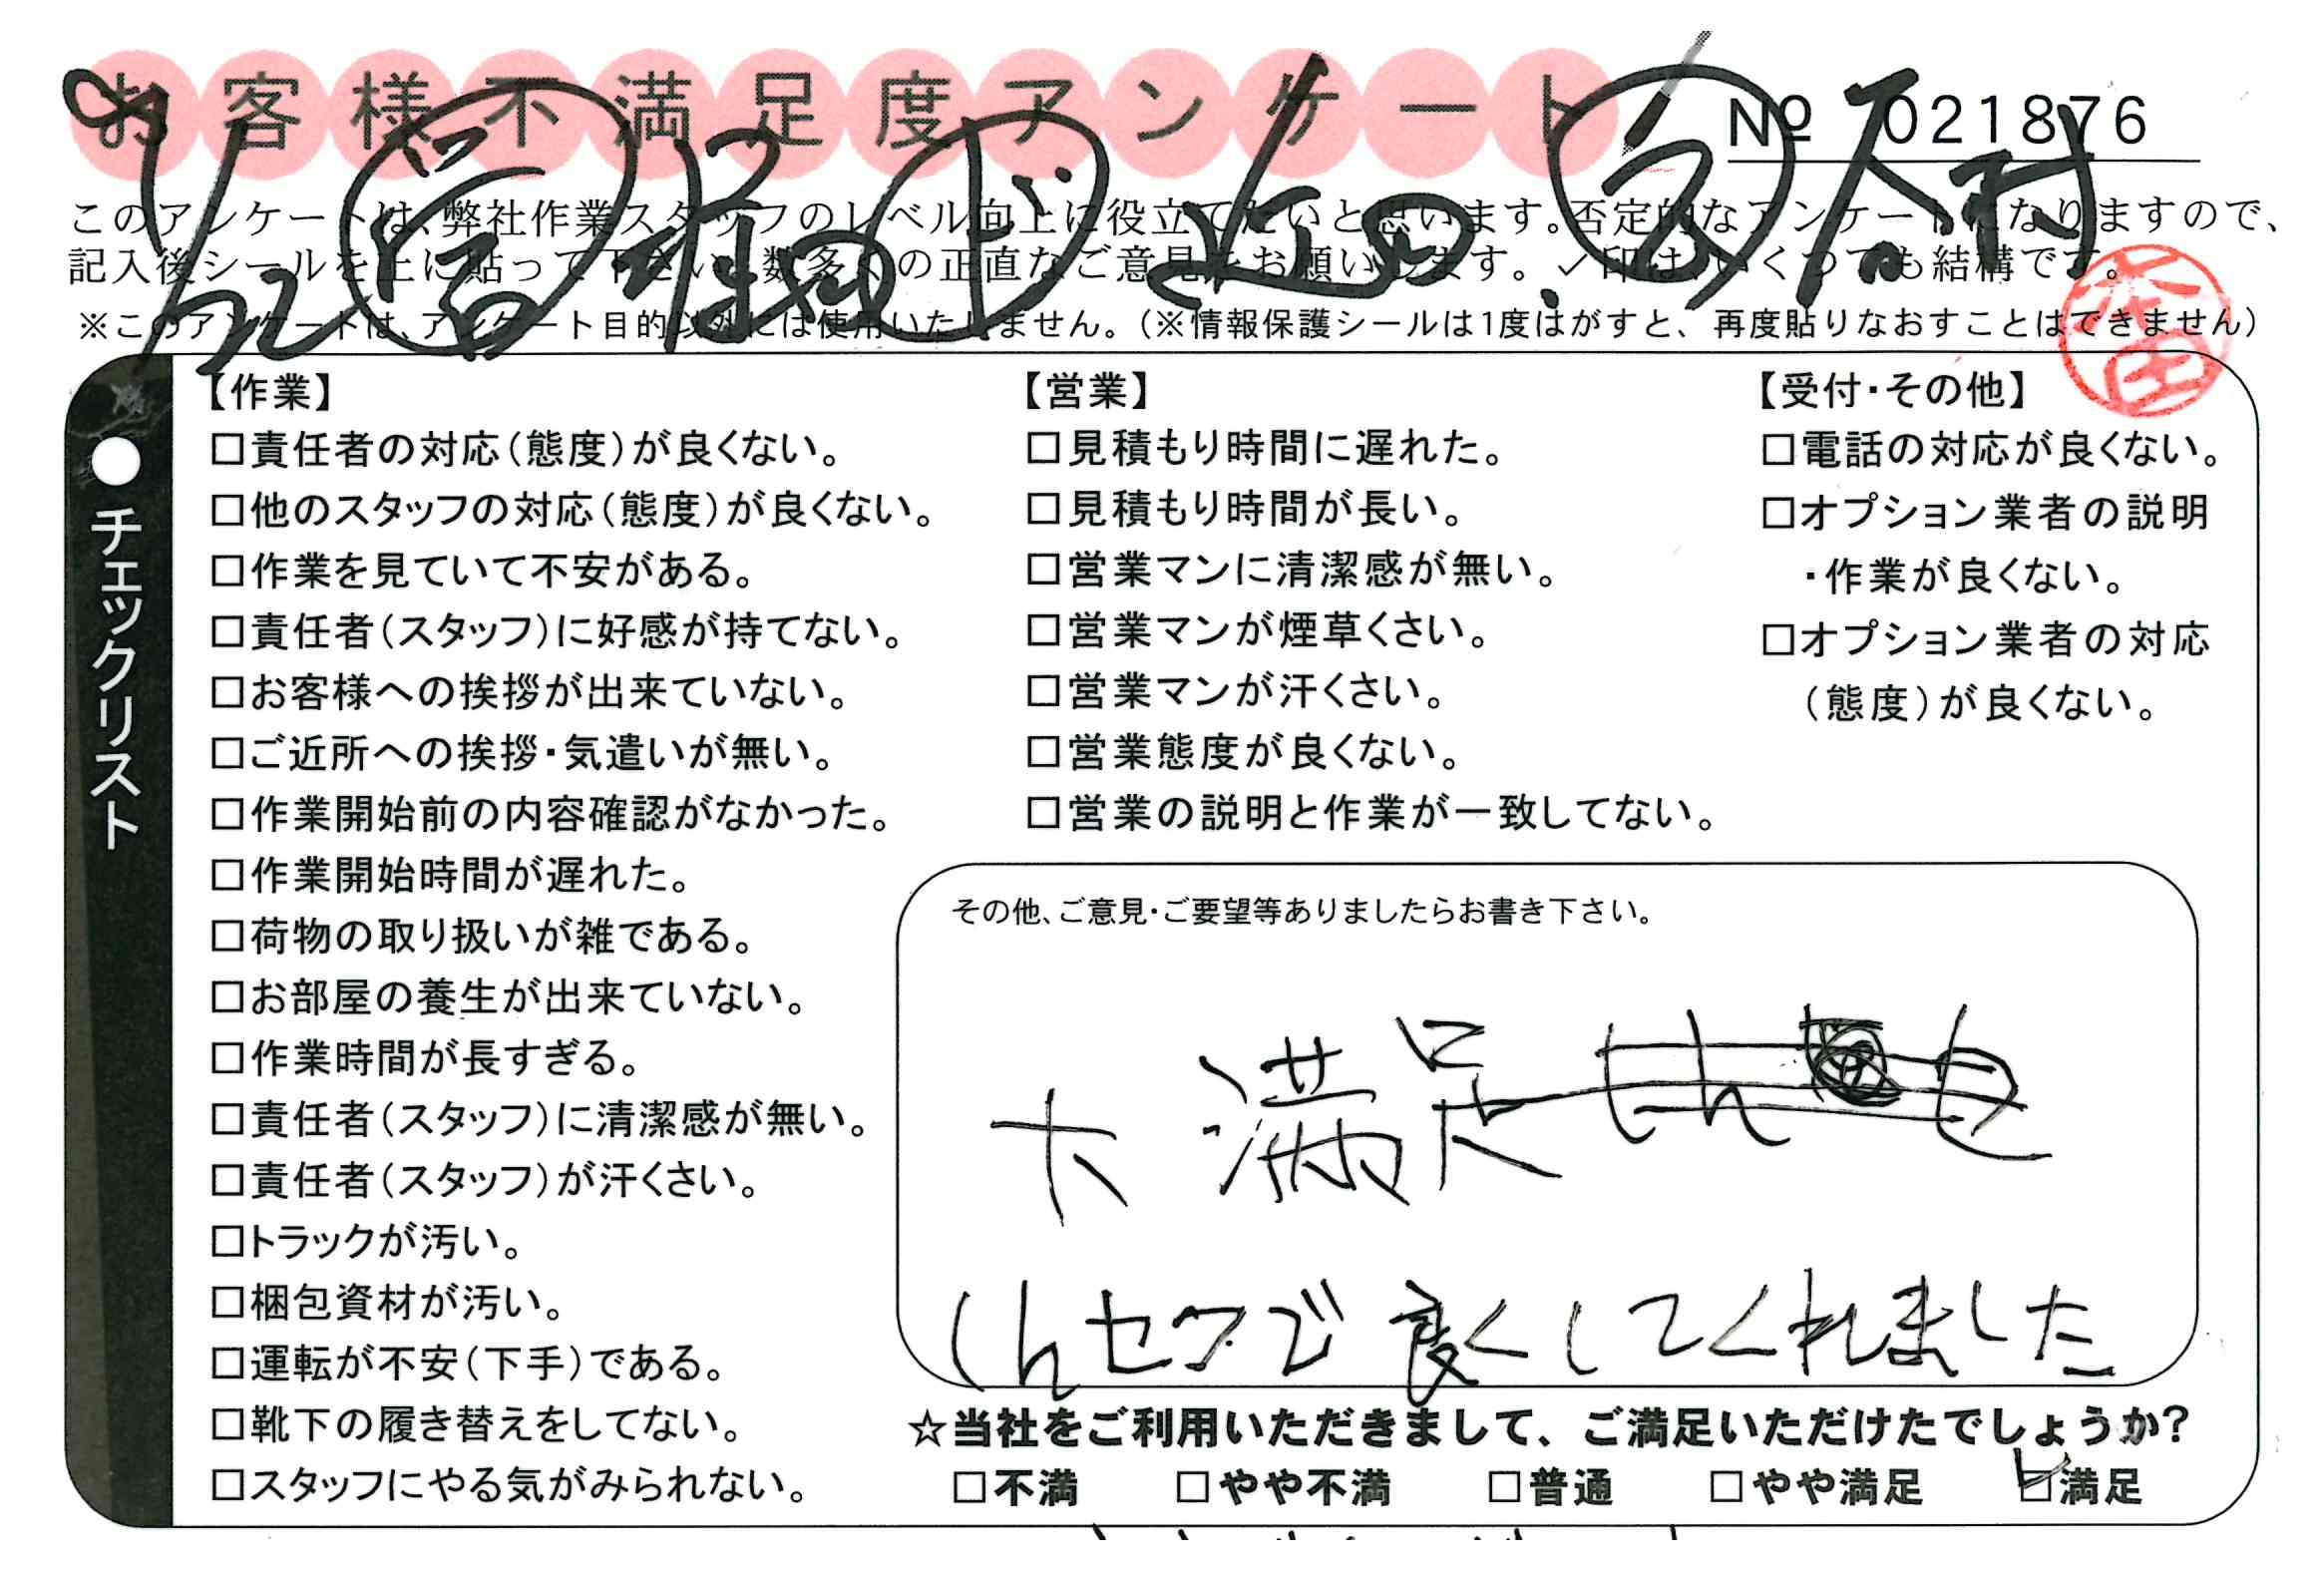 お客様不満足度アンケート
№ 021876
このアンケートは、弊社作業スタッフのレベル向上に役立てたいと思います。否定的なアンケートになりますので、
記入後シールを上に貼って下さい。数多くの正直なご意見をお願いします。✓印は、いくつでも結構です。
※このアンケートは、アンケート目的以外には使用いたしません。（※情報保護シールは1度はがすと、再度貼りなおすことはできません）
本田
●チェックリスト
【作業】
□責任者の対応（態度）が良くない。
□他のスタッフの対応（態度）が良くない。
□作業を見ていて不安がある。
□責任者（スタッフ）に好感が持てない。
□お客様への挨拶が出来ていない。
□ご近所への挨拶・気遣いが無い。
□作業開始前の内容確認がなかった。
□作業開始時間が遅れた。
□荷物の取り扱いが雑である。
□お部屋の養生が出来ていない。
□作業時間が長すぎる。
□責任者（スタッフ）に清潔感が無い。
□責任者（スタッフ）が汗くさい。
□トラックが汚い。
□梱包資材が汚い。
□運転が不安（下手）である。
□靴下の履き替えをしてない。
□スタッフにやる気がみられない。
【営業】
□見積もり時間に遅れた。
□見積もり時間が長い。
□営業マンに清潔感が無い。
□営業マンが煙草くさい。
□営業マンが汗くさい。
□営業態度が良くない。
□営業の説明と作業が一致してない。
【受付・その他】
□電話の対応が良くない。
□オプション業者の説明
・作業が良くない。
□オプション業者の対応
（態度）が良くない。
その他、ご意見・ご要望等ありましたらお書き下さい。
大満足
しんセツで良くしてくれました
☆当社をご利用いただきまして、ご満足いただけたでしょうか？
□不満 □やや不満 □普通 □やや満足 ☑満足